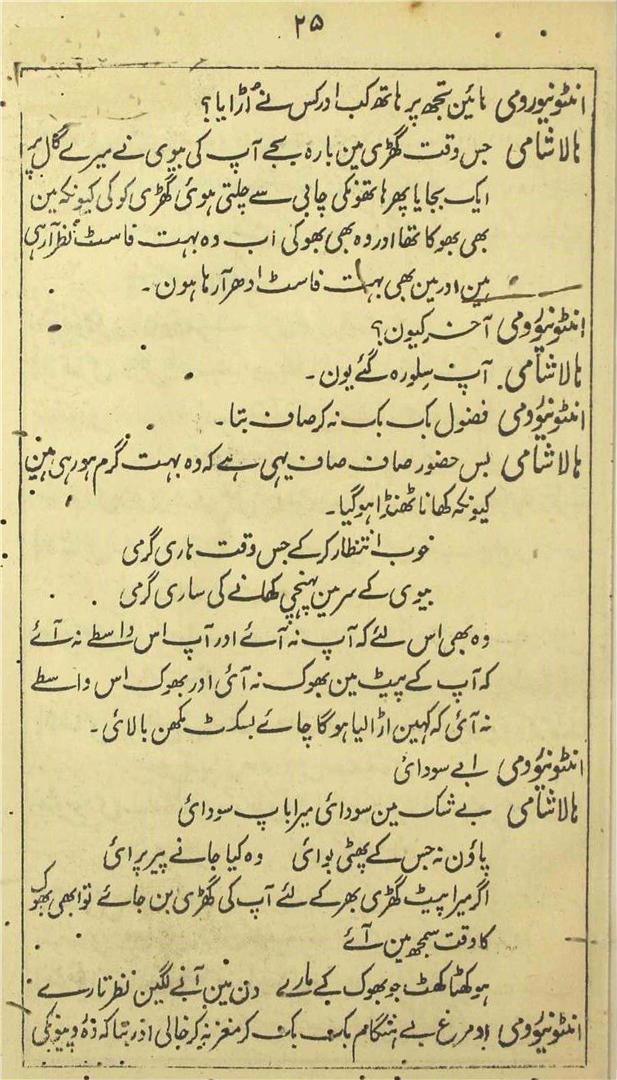 ۲۵
انٹونیو رومی ہائین تجھ پر ہاتھ کب اور کس نے اُڑایا؟
ہالا شامی جس وقت گھڑی مین بارہ بجے آپ کی بیوی نے میرے گال پر
ایک بجایا پھر ہاتھونکی چابی سے چلتی ہوئی گھڑی کوکی کیونکہ مین
بھی بھوکا تھا اور وہ بھی بھوکی اب وہ بہت فاسٹ نظر آرہی
ہین اور مین بھی بہت فاسٹ ادھر آرہا ہون۔
انٹونیو رومی آخر کیون؟
ہالا شامی۔ آپ سلورہ گئے یون۔
انٹونیو رومی فضول بک بک نہ کر صاف بتا۔
ہالا شامی بس حضور صاف صاف یہی ہے کہ وہ بہت گرم ہو رہی ہین
کیونکہ کھانا ٹھنڈا ہوگیا۔
خوب انتظار کرکے جس وقت ہاری گرمی
بیوی کے سر مین پہنچی کھانے کی ساری گرمی
وہ بھی اس لئے کہ آپ نہ آئے اور آپ اس واسطے نہ آئے
کہ آپ کے پیٹ مین بھوک نہ آئی اور بھوک اس واسطے
نہ آئی کہ کہین اڑا لیا ہوگا چائے بسکٹ مکھن بالائی۔
انٹونیو رومی ابے سودائی
ہالا شامی بے شک مین سودائی میرا باپ سودائی
پاؤن نہ جس کے پھٹی بوائی وہ کیا جانے پیر پرائی
اگر میرا پیٹ گھڑی بھر کے لئے آپ کی گھڑی بن جائے تو ابھی بھوک
کا وقت سمجھ مین آئے
ہو کھٹا کھٹ جو بھوک کے مارے دن مین آنے لگین نظر تارے
انٹونیو رومی او مرغ بے ہنگام بک بک کر مغز نہ کر خالی اور بتا کہ